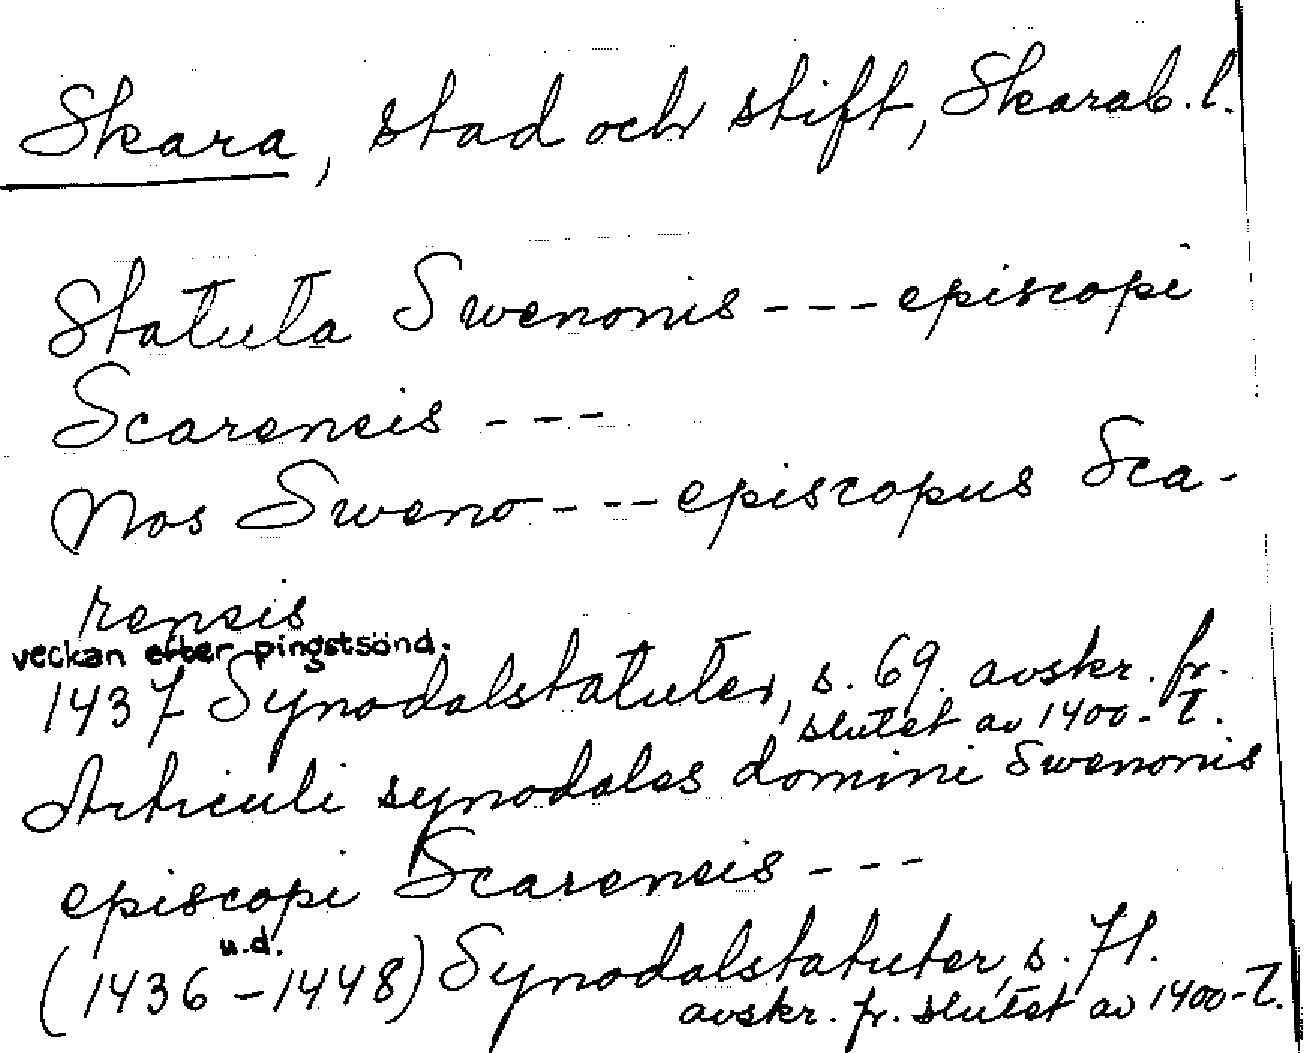 Skara, stad och stift, Skarab. l.
Statuta Swenonis --- episcopi
Scarensis ---
Nos Sweno --- episcopus Sca-
rensis
veckan efter pingstsönd.
1437 Synodalstatuter, s. 69. avskr. fr.
slutet av 1400-t.
Articuli synodales domini Swenonis
episcopi Scarensis ---
u.d.
(1436-1448) Synodalstatuter, s. 71.
avskr. fr. slutet av 1400-t.